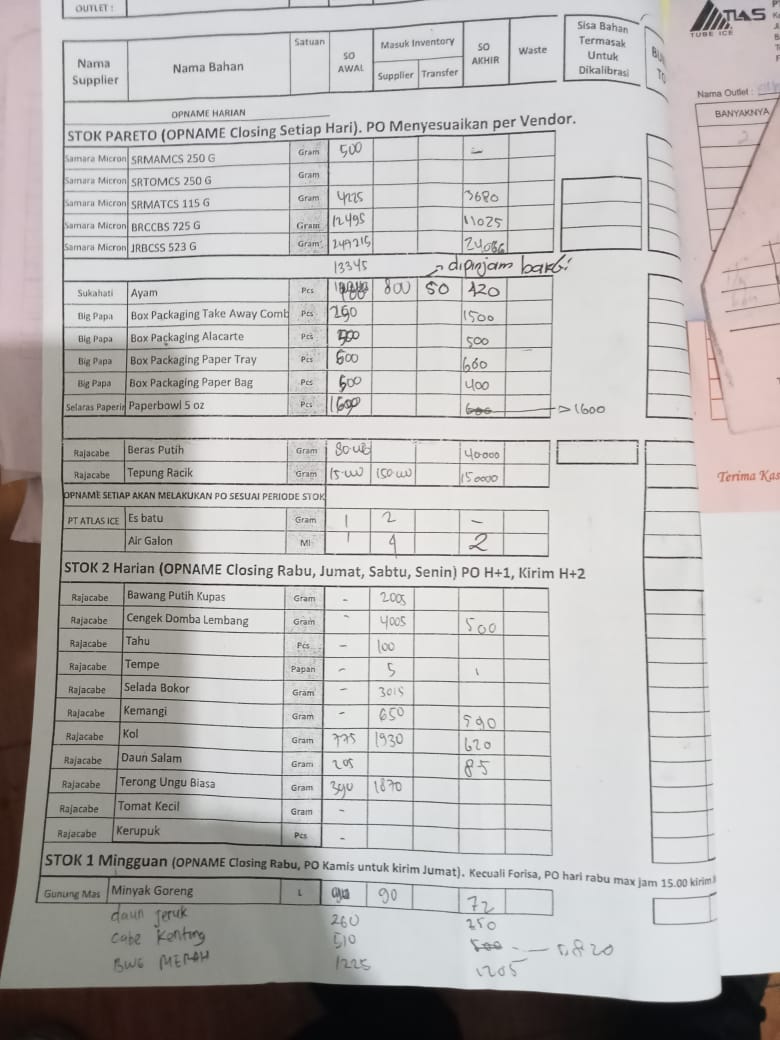 OUTLET :
Nama Supplier Nama Bahan Satuan SO AWAL Masuk Inventory Supplier Transfer SO AKHIR Waste Sisa Bahan Termasak Untuk Dikalibrasi
OPNAME HARIAN
STOK PARETO (OPNAME Closing Setiap Hari). PO Menyesuaikan per Vendor.
Samara Micron SRMAMCS 250 G Gram 500 -
Samara Micron SRTOMCS 250 G Gram
Samara Micron SRMATCS 115 G Gram 4225 3680
Samara Micron BRCCBS 725 G Gram 12495 11025
Samara Micron JRBCSS 523 G Gram
13345 dipinjam
Sukahati Ayam Pcs 800 50 420
Big Papa Box Packaging Take Away Comb Pcs 250 1500
Big Papa Box Packaging Alacarte Pcs 500
Big Papa Box Packaging Paper Tray Pcs 600 600
Big Papa Box Packaging Paper Bag Pcs 500 400
Selaras Paperin Paperbowl 5 oz Pcs 1600 600 > 1600
Rajacabe Beras Putih Gram 40000
Rajacabe Tepung Racik Gram 150000
OPNAME SETIAP AKAN MELAKUKAN PO SESUAI PERIODE STOK
PT ATLAS ICE Es batu Gram 1 2 -
Air Galon Ml 1 4 2
STOK 2 Harian (OPNAME Closing Rabu, Jumat, Sabtu, Senin) PO H+1, Kirim H+2
Rajacabe Bawang Putih Kupas Gram - 2005
Rajacabe Cengek Domba Lembang Gram - 4005 500
Rajacabe Tahu Pcs - 100
Rajacabe Tempe Papan - 5 1
Rajacabe Selada Bokor Gram - 3015
Rajacabe Kemangi Gram - 650 590
Rajacabe Kol Gram 775 1930 620
Rajacabe Daun Salam Gram 205 85
Rajacabe Terong Ungu Biasa Gram 390 1870
Rajacabe Tomat Kecil Gram -
Rajacabe Kerupuk Pcs -
STOK 1 Mingguan (OPNAME Closing Rabu, PO Kamis untuk kirim Jumat). Kecuali Forisa, PO hari rabu max jam 15.00 kirim
Gunung Mas Minyak Goreng L 90 72
daun jeruk 260 250
cabe Kenting 510 500
BWG MERAH 1225 1205
TLAS
TUBE ICE
Nama Outlet :
BANYAKNYA
2
Terima Kas